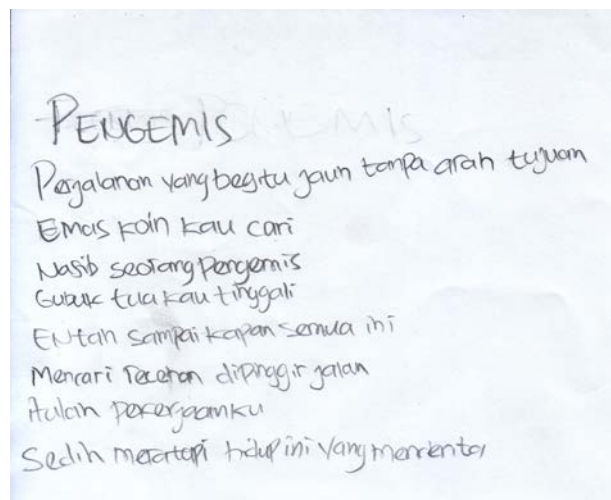 PENGEMIS
Perjalanan yang begitu jauh tanpa arah tujuan
Emas koin kau cari
Nasib seorang Pengemis
Gubuk tua kau tinggali
Entah sampai kapan semua ini
Mencari receran dipinggir jalan
Itulah pekerjaanku
Sedih meratapi hidup ini yang